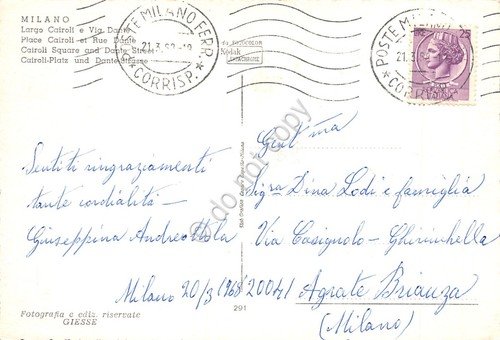 MILANO
Largo Cairoli e Via Dante
Place Cairoli et Rue Dante
Cairoli Square and Dante Street
Cairoli-Platz und Dante-Strasse
POSTE MILANO FERR.
21.3.68-19
★ CORRISP. ★
Kodak
EKTACHROME
POSTE MILANO
21.3.6
CORRISP.
25
do not copy
Gent.ma
Sentiti ringraziamenti
tante cordialità -
Giuseppina Andreottola
Sig.ra Dina Lodi e famiglia
Via Casignolo - Ghirinhella
Milano 20/3/1968
20041 Agrate Brianza
(Milano)
Fotografia e ediz. riservate
GIESSE
291